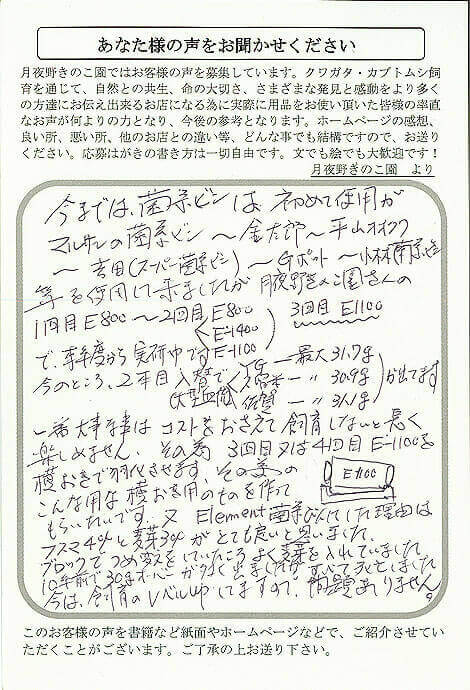 あなた様の声をお聞かせください
月夜野きのこ園ではお客様の声を募集しています。クワガタ・カブトムシ飼
育を通じて、自然との共生、命の大切さ、さまざまな発見と感動をより多く
の方達にお伝え出来るお店になる為に実際に用品をお使い頂いた皆様の率直
なお声が何よりの力となり、今後の参考となります。ホームページの感想、
良い所、悪い所、他のお店との違い等、どんな事でも結構ですので、お送り
ください。応募はがきの書き方は一切自由です。文でも絵でも大歓迎です！
月夜野きのこ園 より
今までは、菌糸ビンは初めて使用が
マルサンの菌糸ビン〜金太郎〜平山オオクワ
〜吉田(スーパー菌糸ビン)〜Gポット〜小林菌糸ビン
等を使用して来ましたが月夜野きのこ園さんの
1回目E-800〜2回目E-800 3回目 E-1100
E-1400
で、本年度から実行中です E-1100
今のところ、2年目入替で YG 一最大31.7g
大型血統 久留米一 〃 30.9g が出てます
佐賀 一 〃 31.1g
一番大事な事はコストをおさえて飼育しないと長く
楽しめません、その為 3回目又は4回目E-1100を
横おきで羽化させます。その為の
E-1100
こんな用な横おき用のものを作って
もらいたいです。又Element菌糸びんにした理由は
フスマ4%と麦芽3%がとても良いと思いました。
ブロックでつめ変えをしていたころよく麦芽を入れていました
10年前で30gオーバーが多く出ましたがすべて死としました
今は、飼育のレベルupしてますので、問題ありません。
このお客様の声を書籍など紙面やホームページなどで、ご紹介させてい
ただくことがございます。ご了承の上お送り下さい。